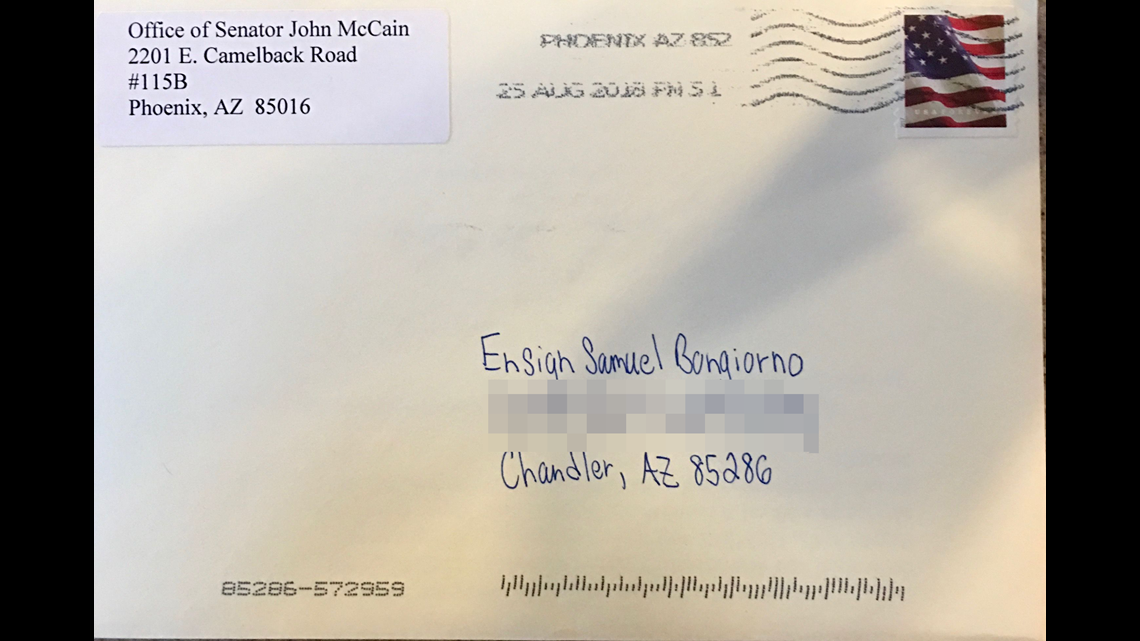 Office of Senator John McCain
2201 E. Camelback Road
#115B
Phoenix, AZ 85016
PHOENIX AZ 852
25 AUG 2018 PM 5 L
Ensign Samuel Bongiorno
Chandler, AZ 85286
85286-572959